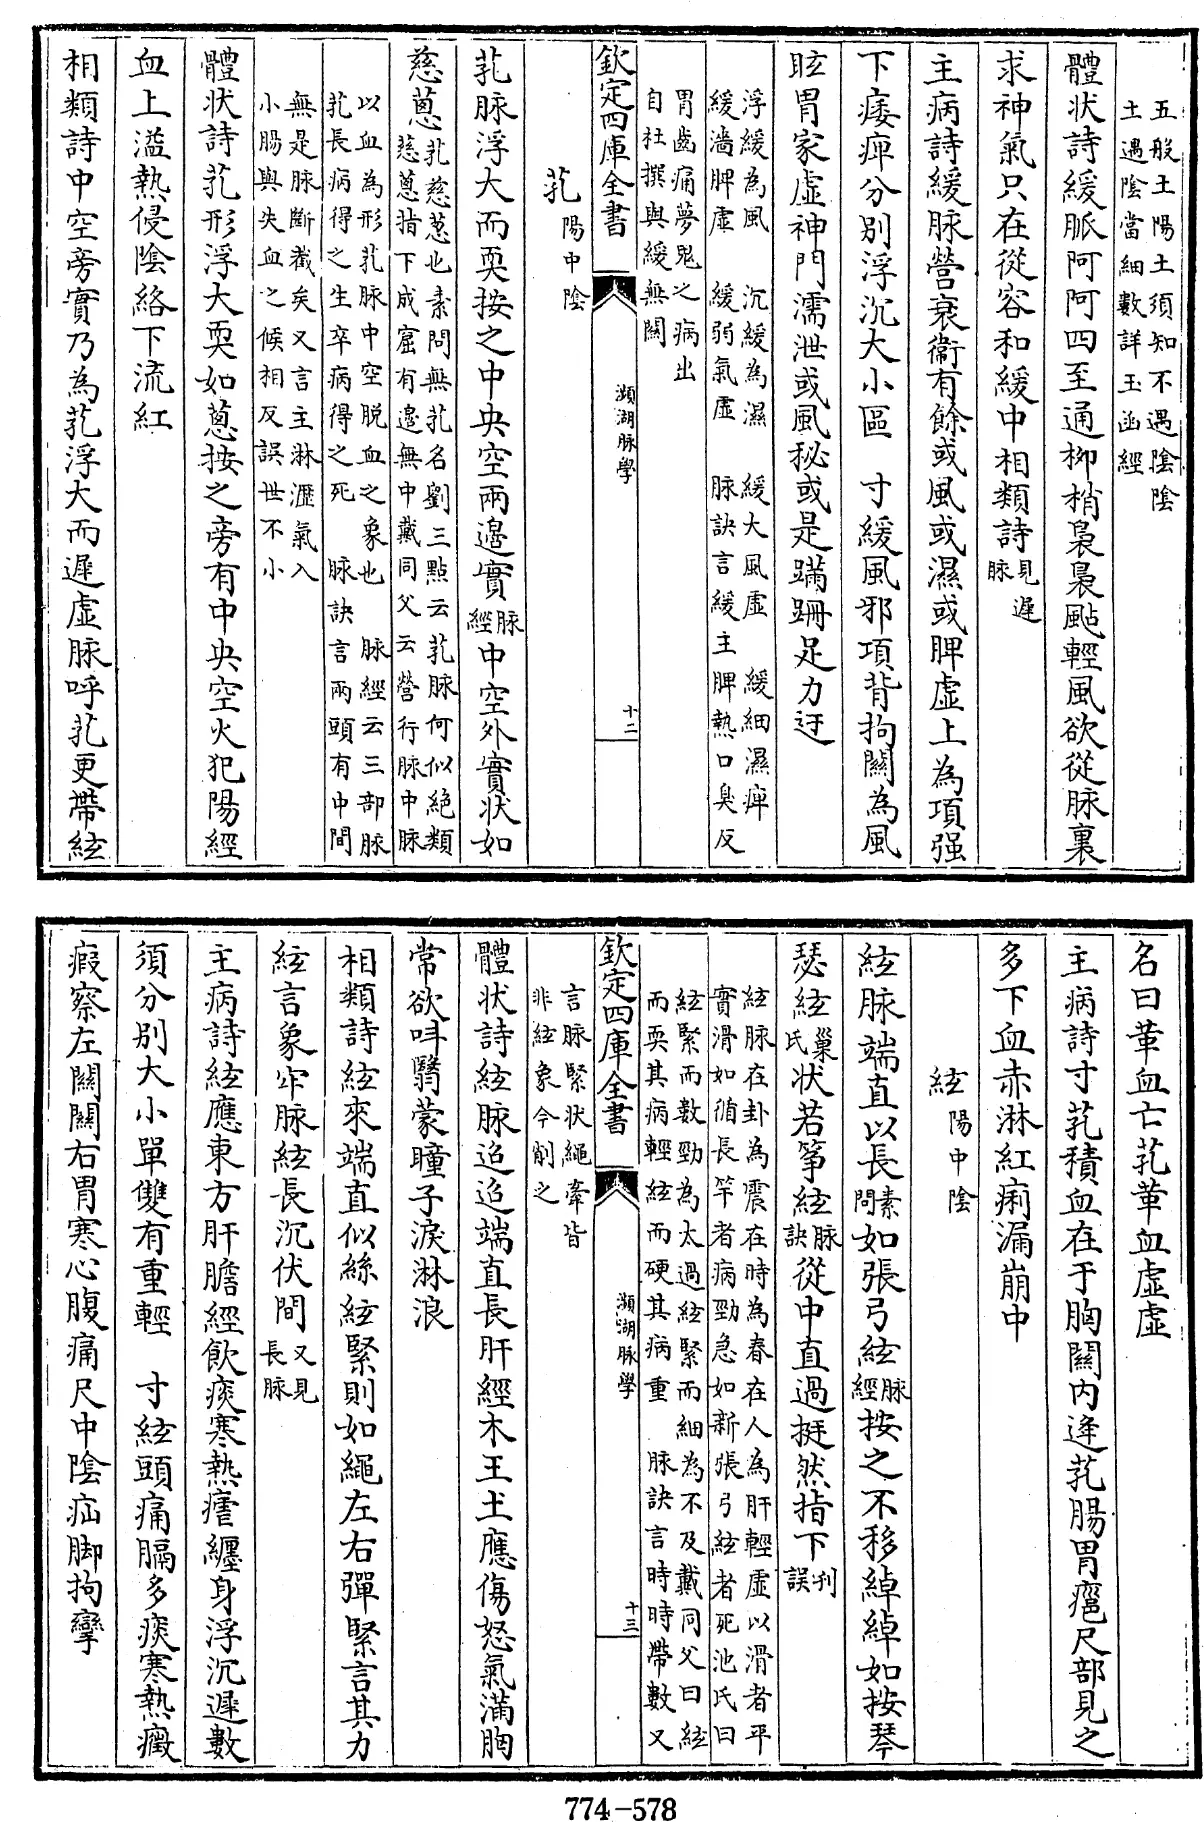 五般土陽土須知不遇陰陰
土遇陰當細數詳玉函經
體狀詩緩脈阿阿四至通柳梢裊裊颭輕風欲從脉裏
求神氣只在從容和緩中相類詩見遲脉
主病詩緩脉營衰衛有餘或風或濕或脾虛上為項强
下痿痺分別浮沉大小區　寸緩風邪項背拘關為風
眩胃家虛神門濡泄或風秘或是蹣跚足力迂
浮緩為風　沉緩為濕　緩大風虛　緩細濕痺
緩濇脾虛　緩弱氣虛　脉訣言緩主脾熱口臭反
胃齒痛夢鬼之病出
自杜撰與緩無關
欽定四庫全書　瀕湖脉學　十二
芤陽中陰
芤脉浮大而耎按之中央空兩邊實脉經中空外實狀如
慈葱芤慈葱也素問無芤名劉三點云芤脉何似絶類
慈葱指下成窟有邉無中戴同父云營行脉中脉
以血為形芤脉中空脱血之象也　脉經云三部脉
芤長病得之生卒病得之死　脉訣言兩頭有中間
無是脉斷截矣又言主淋瀝氣入
小腸與失血之候相反誤世不小
體狀詩芤形浮大耎如葱按之旁有中央空火犯陽經
血上溢熱侵陰絡下流紅
相類詩中空旁實乃為芤浮大而遲虛脉呼芤更帶絃
名曰革血亡芤革血虛虛
主病詩寸芤積血在于胸關内逢芤腸胃癰尺部見之
多下血赤淋紅痢漏崩中
絃陽中陰
絃脉端直以長素問如張弓絃脉經按之不移綽綽如按琴
瑟絃巢氏状若筝絃脉訣從中直過挺然指下刋誤
絃脉在卦為震在時為春在人為肝輕虛以滑者平
實滑如循長竿者病勁急如新張弓絃者死池氏曰
絃緊而數勁為太過絃緊而細為不及戴同父曰絃
而耎其病輕絃而硬其病重　脉訣言時時帶數又
欽定四庫全書　瀕湖脉學　十三
言脉緊状繩牽皆
非絃象今削之
體状詩絃脉迢迢端直長肝經木王土應傷怒氣滿胸
常欲呌翳蒙瞳子淚淋浪
相類詩絃來端直似絲絃緊則如繩左右彈緊言其力
絃言象牢脉絃長沉伏間又見長脉
主病詩絃應東方肝膽經飲痰寒熱瘧纏身浮沉遲數
須分別大小單雙有重輕　寸絃頭痛膈多痰寒熱癥
瘕察左關關右胃寒心腹痛尺中陰疝脚拘攣
774-578